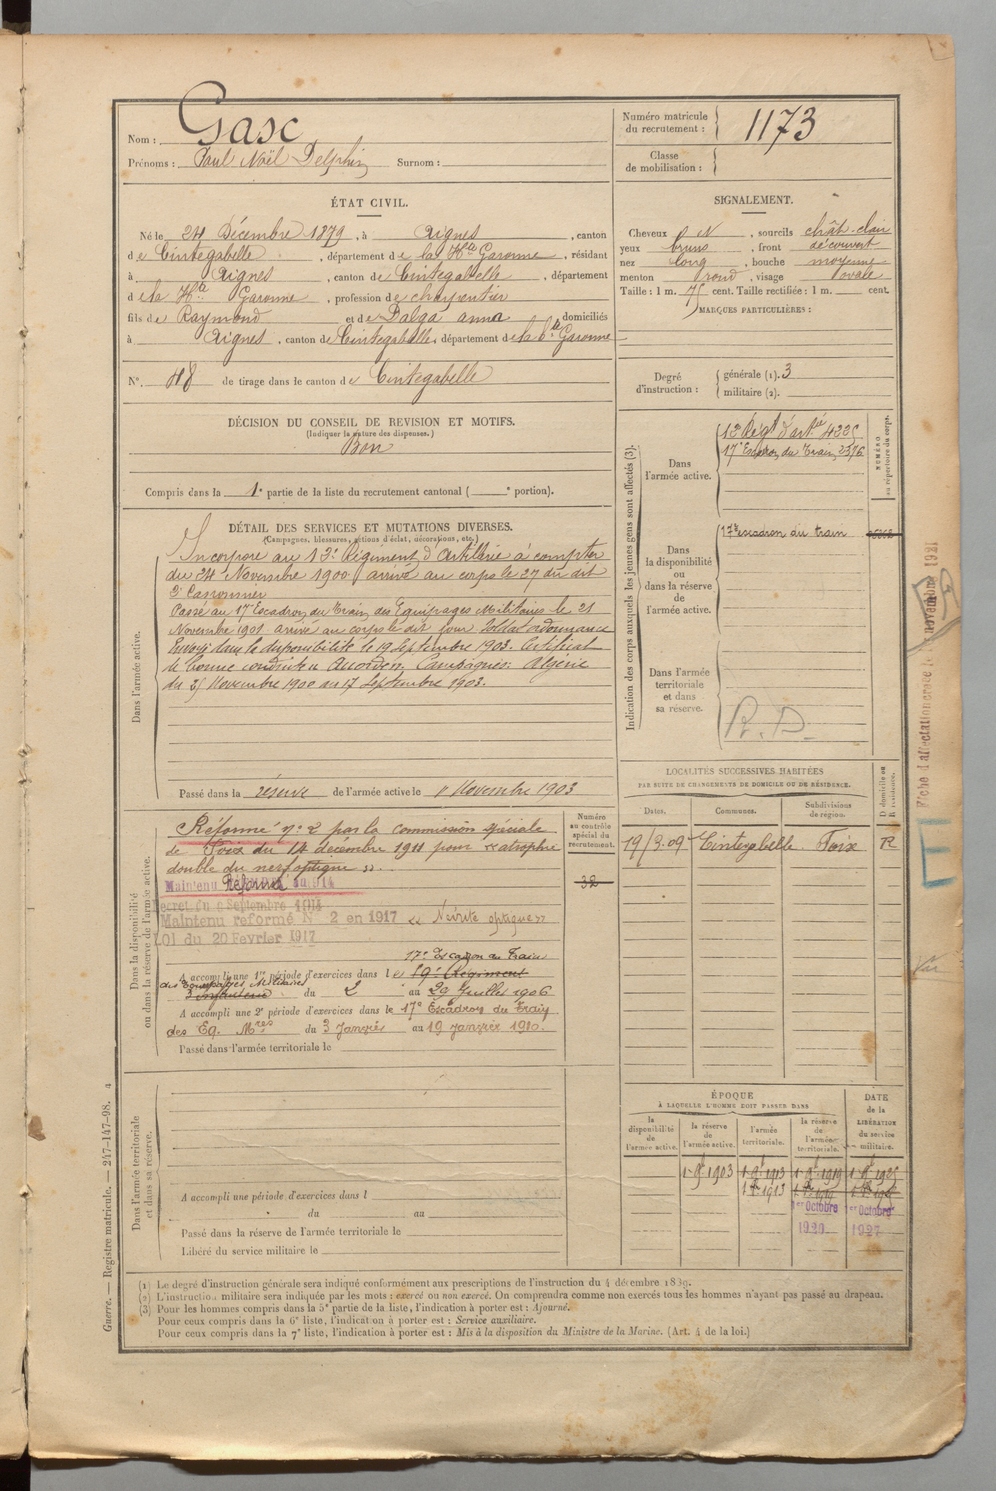 Nom : Gasc
Prénoms : Paul Noël Delphin Surnom :
Numéro matricule du recrutement : 1173
Classe de mobilisation :
ÉTAT CIVIL.
Né le 24 Décembre 1879, à Aignes, canton
de Cintegabelle, département de la Hte Garonne, résidant
à Aignes, canton de Cintegabelle, département
de la Hte Garonne, profession de charpentier
fils de Raymond et de Dalga anna domiciliés
à Aignes, canton de Cintegabelle, département de la hte Garonne
N°. 48 de tirage dans le canton de Cintegabelle
SIGNALEMENT.
Cheveux et, sourcils chât-clair
yeux bruns, front découvert
nez long, bouche moyenne
menton rond, visage ovale
Taille : 1 m. 75 cent. Taille rectifiée : 1 m. cent.
MARQUES PARTICULIÈRES :
Degré d'instruction : générale (1). 3
militaire (2).
DÉCISION DU CONSEIL DE REVISION ET MOTIFS.
(Indiquer la nature des dispenses.)
Bon
Compris dans la 1e partie de la liste du recrutement cantonal ( e portion).
DÉTAIL DES SERVICES ET MUTATIONS DIVERSES.
(Campagnes, blessures, actions d'éclat, décorations, etc.)
Dans l'armée active.
Incorporé au 12e Régiment d'artillerie à compter
du 24 Novembre 1900 arrivé au corps le 27 du dit
2e Canonnier
Passé au 17e Escadron du Train des Equipages Militaires le 21
Novembre 1901 arrivé au corps le dit jour Soldat ordonnance
Envoyé dans la disponibilité le 19 Septembre 1903. Certificat
de bonne conduite Accordé. Campagnes: Algérie
du 25 Novembre 1900 au 17 Septembre 1903.
Passé dans la réserve de l'armée active le 1 Novembre 1903
Indication des corps auxquels les jeunes gens sont affectés (3).
NUMÉRO au répertoire du corps.
Dans l'armée active.
12e Régt d'artie 4225
17e Escadron du Train, 2596
Dans la disponibilité ou dans la réserve de l'armée active.
17e escadron du train
Dans l'armée territoriale et dans sa réserve.
R. D.
Fiche d'affectation créée le novembre 1921
Dans la disponibilité ou dans la réserve de l'armée active.
Numéro au contrôle spécial du recrutement.
32
Réformé n° 2 par la commission spéciale
de Foix du 14 décembre 1911 pour "atrophie
double du nerf optique".
Maintenu Réformé au 1914
Décret du 9 Septembre 1914
Maintenu reformé N° 2 en 1917 « Névrite optique »
LOI du 20 Février 1917
17e Escadron du Train
A accompli une 1re période d'exercices dans le 59e Régiment
des Equipages Militaires
d'infanterie du 2 au 29 Juillet 1906
A accompli une 2e période d'exercices dans le 17e Escadron du Train
des Eq. Mres du 3 Janvier au 19 janvier 1910.
Passé dans l'armée territoriale le
LOCALITÉS SUCCESSIVES HABITÉES
PAR SUITE DE CHANGEMENTS DE DOMICILE OU DE RÉSIDENCE.
Dates. Communes. Subdivisions de région. D domicile ou R résidence.
19/3.09 Cintegabelle Foix R
Dans l'armée territoriale et dans sa réserve.
A accompli une période d'exercices dans l
du au
Passé dans la réserve de l'armée territoriale le
Libéré du service militaire le
ÉPOQUE
À LAQUELLE L'HOMME DOIT PASSER DANS
la disponibilité de l'armée active. la réserve de l'armée active. l'armée territoriale. la réserve de l'armée territoriale. DATE de la LIBÉRATION du service militaire.
1 9bre 1903 1 9bre 1913 1 9bre 1919 1 9bre 1925
1er Octobre 1er Octobre
1920 1927
(1) Le degré d'instruction générale sera indiqué conformément aux prescriptions de l'instruction du 4 décembre 1889.
(2) L'instruction militaire sera indiquée par les mots : exercé ou non exercé. On comprendra comme non exercés tous les hommes n'ayant pas passé au drapeau.
(3) Pour les hommes compris dans la 5e partie de la liste, l'indication à porter est : Ajourné.
Pour ceux compris dans la 6e liste, l'indication à porter est : Service auxiliaire.
Pour ceux compris dans la 7e liste, l'indication à porter est : Mis à la disposition du Ministre de la Marine. (Art. 4 de la loi.)
Guerre. — Registre matricule. — 247-147-98. 4